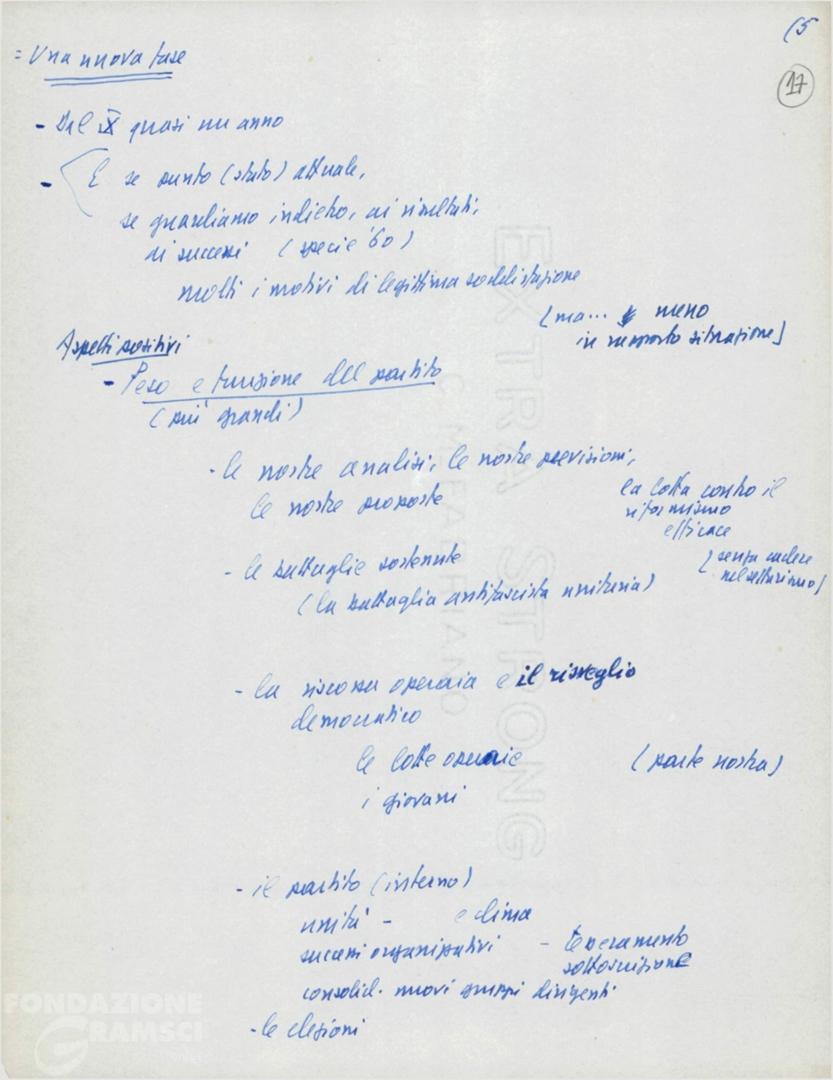 (5
17
= Una nuova fase
- Dal IX quasi un anno
- E se punto (stato) attuale,
se guardiamo indietro, ai risultati,
ai successi (specie '60)
molti i motivi di legittima soddisfazione
[ma... meno
in rapporto situazione]
Aspetti positivi
- Peso e funzione del partito
(più grandi)
- le nostre analisi, le nostre previsioni,
le nostre proposte
la lotta contro il
riformismo
efficace
[senza cadere
nel settarismo]
- le battaglie sostenute
(la battaglia antifascista unitaria)
- la riscossa operaia e il risveglio
democratico
le lotte operaie (parte nostra)
i giovani
- il partito (interno)
unità - e clima
successi organizzativi - tesseramento
sottoscrizione
consolid. nuovi gruppi dirigenti
- le elezioni
EXTRA STRONG
C. M. FABRIANO
FONDAZIONE
GRAMSCI